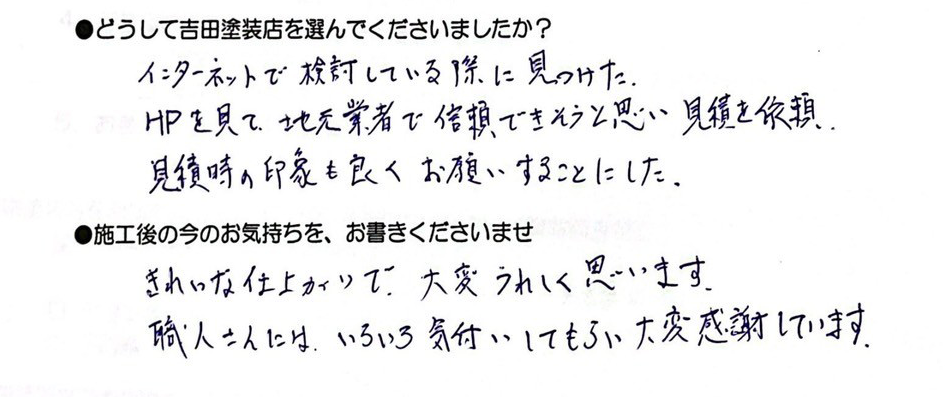 ●どうして吉田塗装店を選んでくださいましたか？
インターネットで検討している際に見つけた.
HPを見て、地元業者で信頼できそうと思い 見積を依頼.
見積時の印象も良く お願いすることにした.
●施工後の今のお気持ちを、お書きくださいませ
きれいな仕上がりで、大変うれしく思います.
職人さんには、いろいろ気付いしてもらい大変感謝しています.